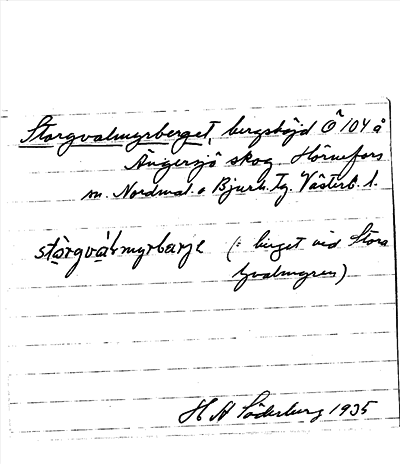 Storgvalmyrberget, bergshöjd Ö 104 å
Ängersjö skog. Hörnefors
sn. Nordmal. o Bjurh. tg. Västerb. l.
stòrgválmyrbærje (: berget vid Stora
Gvalmyren)
H A Söderberg 1935